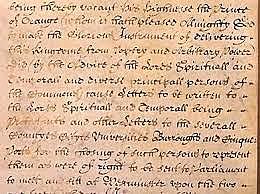 being thereby vacant His Highnesse the Prince
of Orange (whom it hath pleased Almighty God
to make the Glorious Instrument of delivering
this Kingdome from Popery and Arbitrary Power)
did by the Advice of the Lords Spirituall and
Temporall and diverse principall persons of
the Commons cause Letters to be written to
the Lords Spirituall and Temporall being
Protestants and other Letters to the severall
Countyes Cityes Universities Burroughs and Cinque
Ports for the choosing of such persons to represent
them as were of right to be sent to Parliament
to meet and sitt at Westminster upon the two